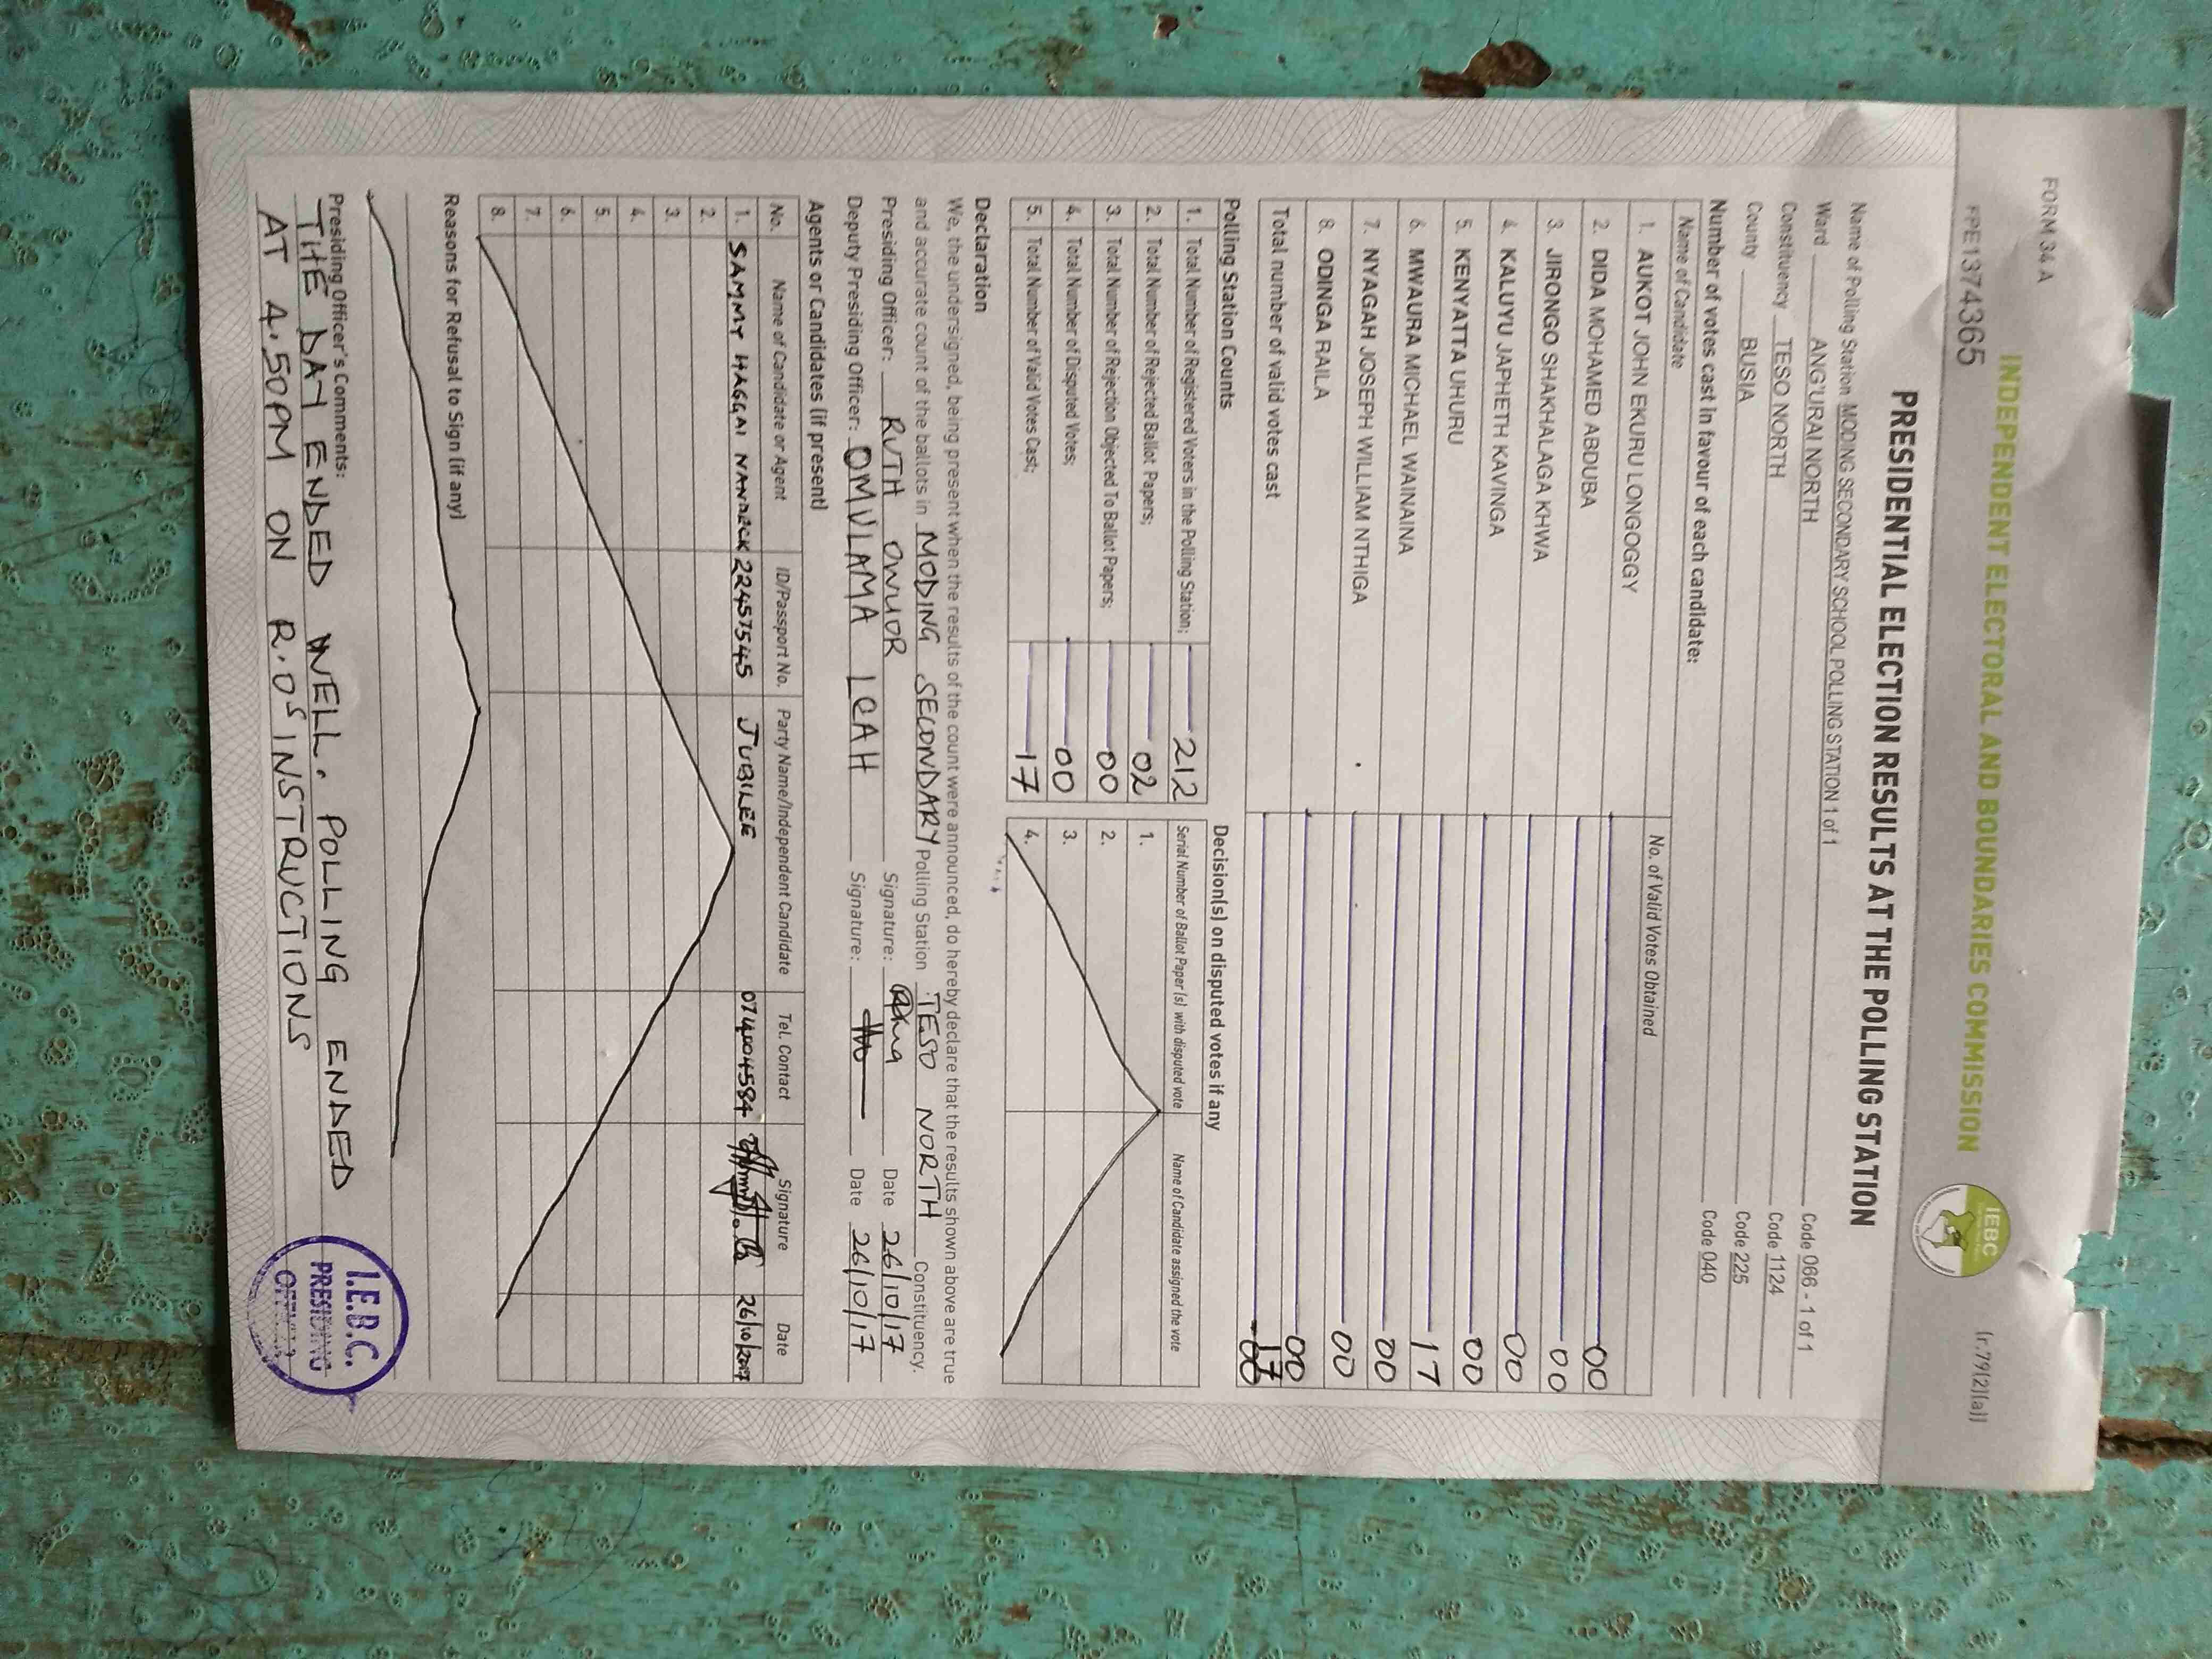 FORM 34 A
(r.79(2)(a))
FPE1374365
INDEPENDENT ELECTORAL AND BOUNDARIES COMMISSION
IEBC
PRESIDENTIAL ELECTION RESULTS AT THE POLLING STATION
Name of Polling Station MODING SECONDARY SCHOOL POLLING STATION 1 of 1 Code 066 - 1 of 1
Ward ANG'URAI NORTH Code 1124
Constituency TESO NORTH Code 225
County BUSIA Code 040
Number of votes cast in favour of each candidate:
Name of Candidate No. of Valid Votes Obtained
1. AUKOT JOHN EKURU LONGOGGY 00
2. DIDA MOHAMED ABDUBA 00
3. JIRONGO SHAKHALAGA KHWA 00
4. KALUYU JAPHETH KAVINGA 00
5. KENYATTA UHURU 17
6. MWAURA MICHAEL WAINAINA 00
7. NYAGAH JOSEPH WILLIAM NTHIGA 00
8. ODINGA RAILA 00
Total number of valid votes cast 17
Polling Station Counts Decision(s) on disputed votes if any
1. Total Number of Registered Voters in the Polling Station; 212
2. Total Number of Rejected Ballot Papers; 02
3. Total Number of Rejection Objected To Ballot Papers; 00
4. Total Number of Disputed Votes; 00
5. Total Number of Valid Votes Cast; 17
Serial Number of Ballot Paper (s) with disputed vote Name of Candidate assigned the vote
1.
2.
3.
4.
Declaration
We, the undersigned, being present when the results of the count were announced, do hereby declare that the results shown above are true
and accurate count of the ballots in MODING SECONDARY Polling Station TESO NORTH Constituency.
Presiding Officer: RUTH OWUOR Signature: Date 26/10/17
Deputy Presiding Officer: OMULAMA LEAH Signature: Date 26/10/17
Agents or Candidates (if present)
No. Name of Candidate or Agent ID/Passport No. Party Name/Independent Candidate Tel. Contact Signature Date
1. SAMMY HAGGAI 22457545 JUBILEE 0714004584 26/10/2017
2.
3.
4.
5.
6.
7.
8.
Reasons for Refusal to Sign (if any)
Presiding Officer's Comments:
THE DAY ENDED WELL. POLLING ENDED
AT 4.50PM ON R.OS INSTRUCTIONS
I.E.B.C.
PRESIDING
OFFICER